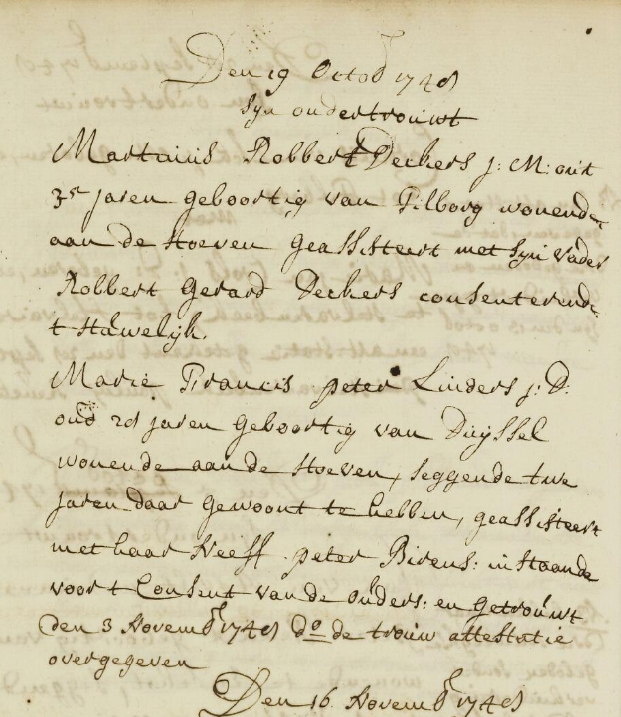 Den 19 Octob 1748
syn ondertrouwt
Martinus Robbert Deckers j: M: out
35 jaren geboortig van Tilborg wonende
aan de Hoeven geassisteert met syn vader
Robbert Gerard Deckers consenterende
t Huwelijk.
Marie Francis peter Linders j: D:
oud 28 jaren geboortig van Duyssel
wonende aan de Hoeven, seggende twe
jaren daar gewoont te hebben, geassisteert
met haar Neeff peter Birens: in staande
voor t Consent van de ouders: en getrouwt
den 3 Novemb 1748 do de trouw attestatie
overgegeven
Den 16 Novemb 1748